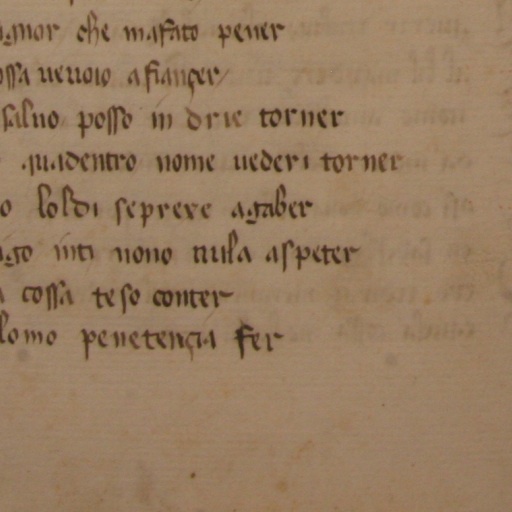 che mafato pener
ossa ueuoio afiançer
saluo posso in drie torner
quadentro nome uederi torner
o loldi seprexe agaber
inti nono nula aspeter
cossa teso conter
lomo penetençia fer